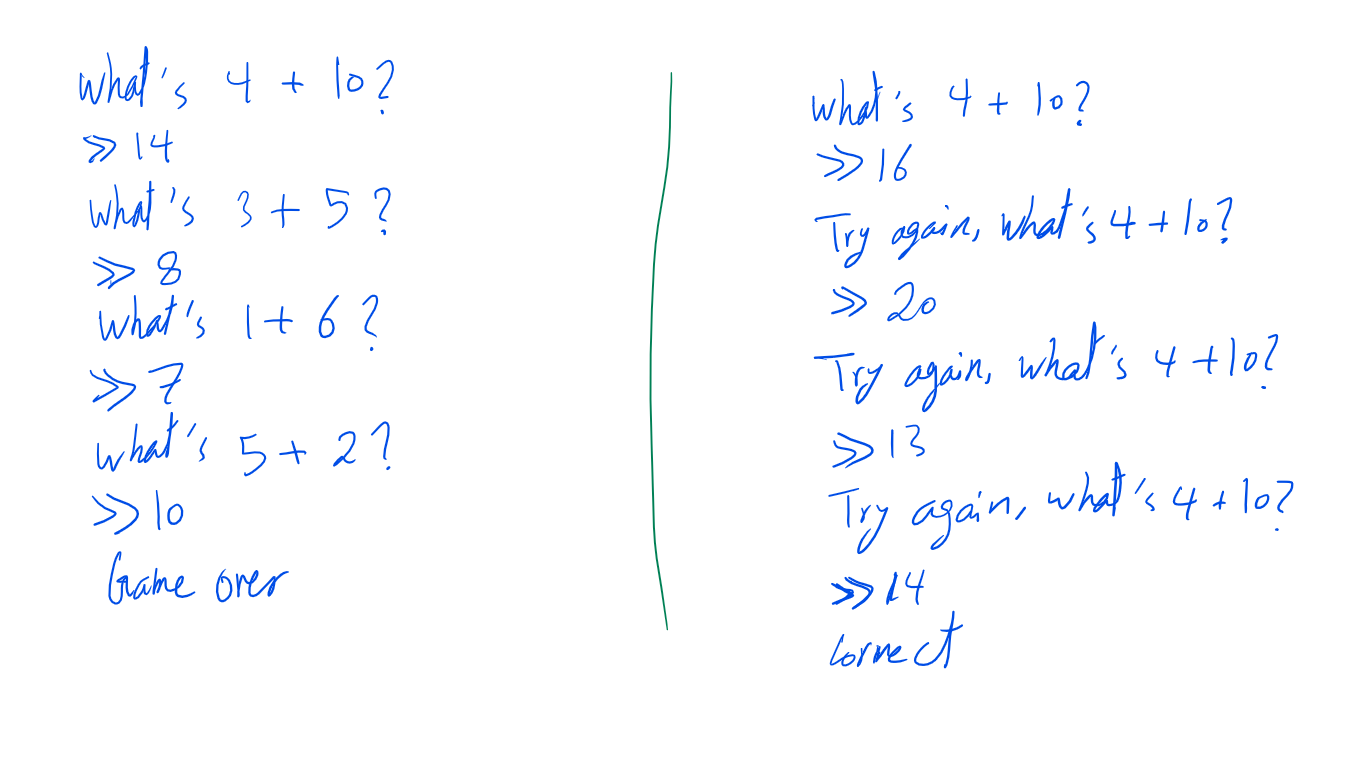 what's 4 + 10?
>> 14
what's 3 + 5?
>> 8
what's 1 + 6?
>> 7
what's 5 + 2?
>> 10
Game over
what's 4 + 10?
>> 16
Try again, what's 4 + 10?
>> 20
Try again, what's 4 + 10?
>> 13
Try again, what's 4 + 10?
>> 14
correct